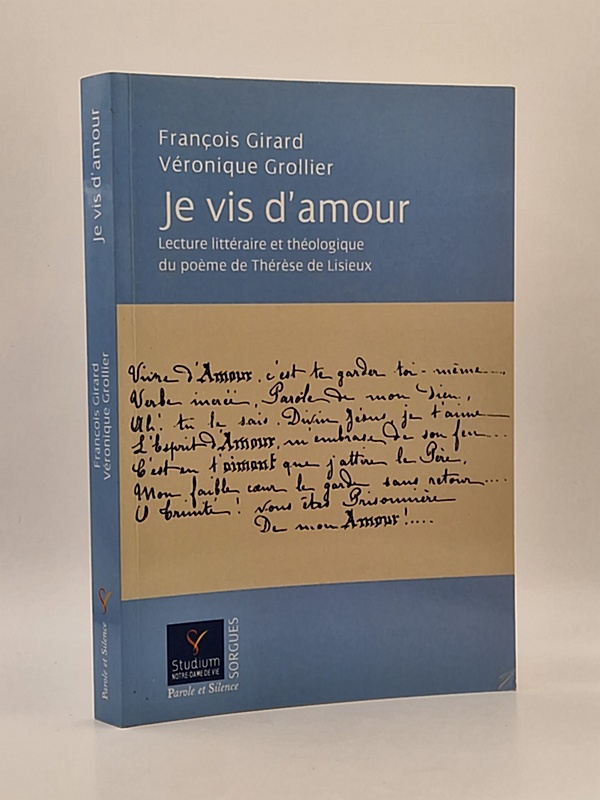 François Girard
Véronique Grollier
Je vis d'amour
Lecture littéraire et théologique
du poème de Thérèse de Lisieux
Vivre d'Amour, c'est te garder toi-même....
Verbe incréé, Parole de mon Dieu,
Ah! tu le sais, Divin Jésus, je t'aime
L'Esprit d'Amour, m'embrase de son feu...
C'est en t'aimant que j'attire le Père,
Mon faible cœur le garde sans retour....
O Trinité! Vous êtes Prisonnière
De mon Amour!....
Studium
NOTRE-DAME DE VIE
Parole et Silence
SORGUES
Je vis d'amour
François Girard
Véronique Grollier
Parole et Silence